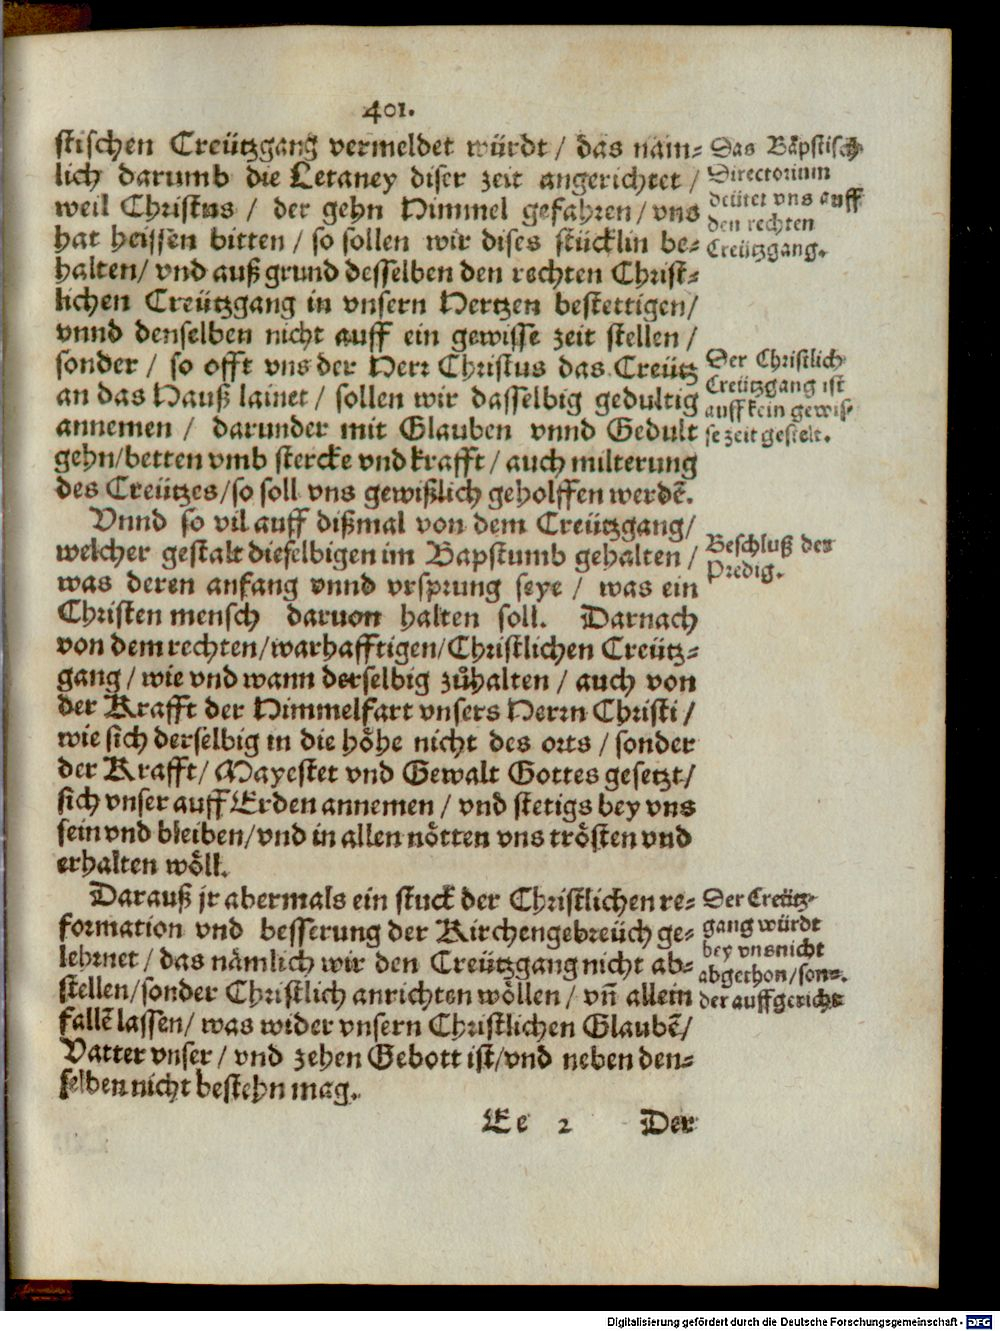 401.
stischen Creützgang vermeldet würdt / das näm-
lich darumb die Letaney diser zeit angerichtet /
weil Christus / der gehn Himmel gefahren / vns
hat heissen bitten / so sollen wir dises stücklin be-
halten / vnd auß grund desselben den rechten Christ-
lichen Creützgang in vnsern Hertzen bestettigen /
vnnd denselben nicht auff ein gewisse zeit stellen /
sonder / so offt vns der Herr Christus das Creütz
an das Hauß lainet / sollen wir dasselbig gedultig
annemen / darunder mit Glauben vnnd Gedult
gehn / betten vmb stercke vnd krafft / auch milterung
des Creützes / so soll vns gewißlich geholffen werdẽ.
Vnnd so vil auff dißmal von dem Creützgang /
welcher gestalt dieselbigen im Bapstumb gehalten /
was deren anfang vnnd vrsprung seye / was ein
Christen mensch daruon halten soll. Darnach
von dem rechten / warhafftigen / Christlichen Creütz-
gang / wie vnd wann derselbig zůhalten / auch von
der Krafft der Himmelfart vnsers Herrn Christi /
wie sich derselbig in die höhe nicht des orts / sonder
der Krafft / Mayestet vnd Gewalt Gottes gesetzt /
sich vnser auff Erden annemen / vnd stetigs bey vns
sein vnd bleiben / vnd in allen nötten vns trösten vnd
erhalten wöll.
Darauß jr abermals ein stuck der Christlichen re-
formation vnd besserung der Kirchengebreüch ge-
lehrnet / das nämlich wir den Creützgang nicht ab-
stellen / sonder Christlich anrichten wöllen / vñ allein
fallẽ lassen / was wider vnsern Christlichen Glaubẽ /
Vatter vnser / vnd zehen Gebott ist / vnd neben den-
selben nicht bestehn mag.
Ee 2 Der
Das Bäpstisch
Directorium
deütet vns auff
den rechten
Creützgang.
Der Christlich
Creützgang ist
auff kein gewis-
se zeit gestelt.
Beschluß der
Predig.
Der Creütz-
gang würdt
bey vns nicht
abgethon / son-
der auffgericht
Digitalisierung gefördert durch die Deutsche Forschungsgemeinschaft - DFG